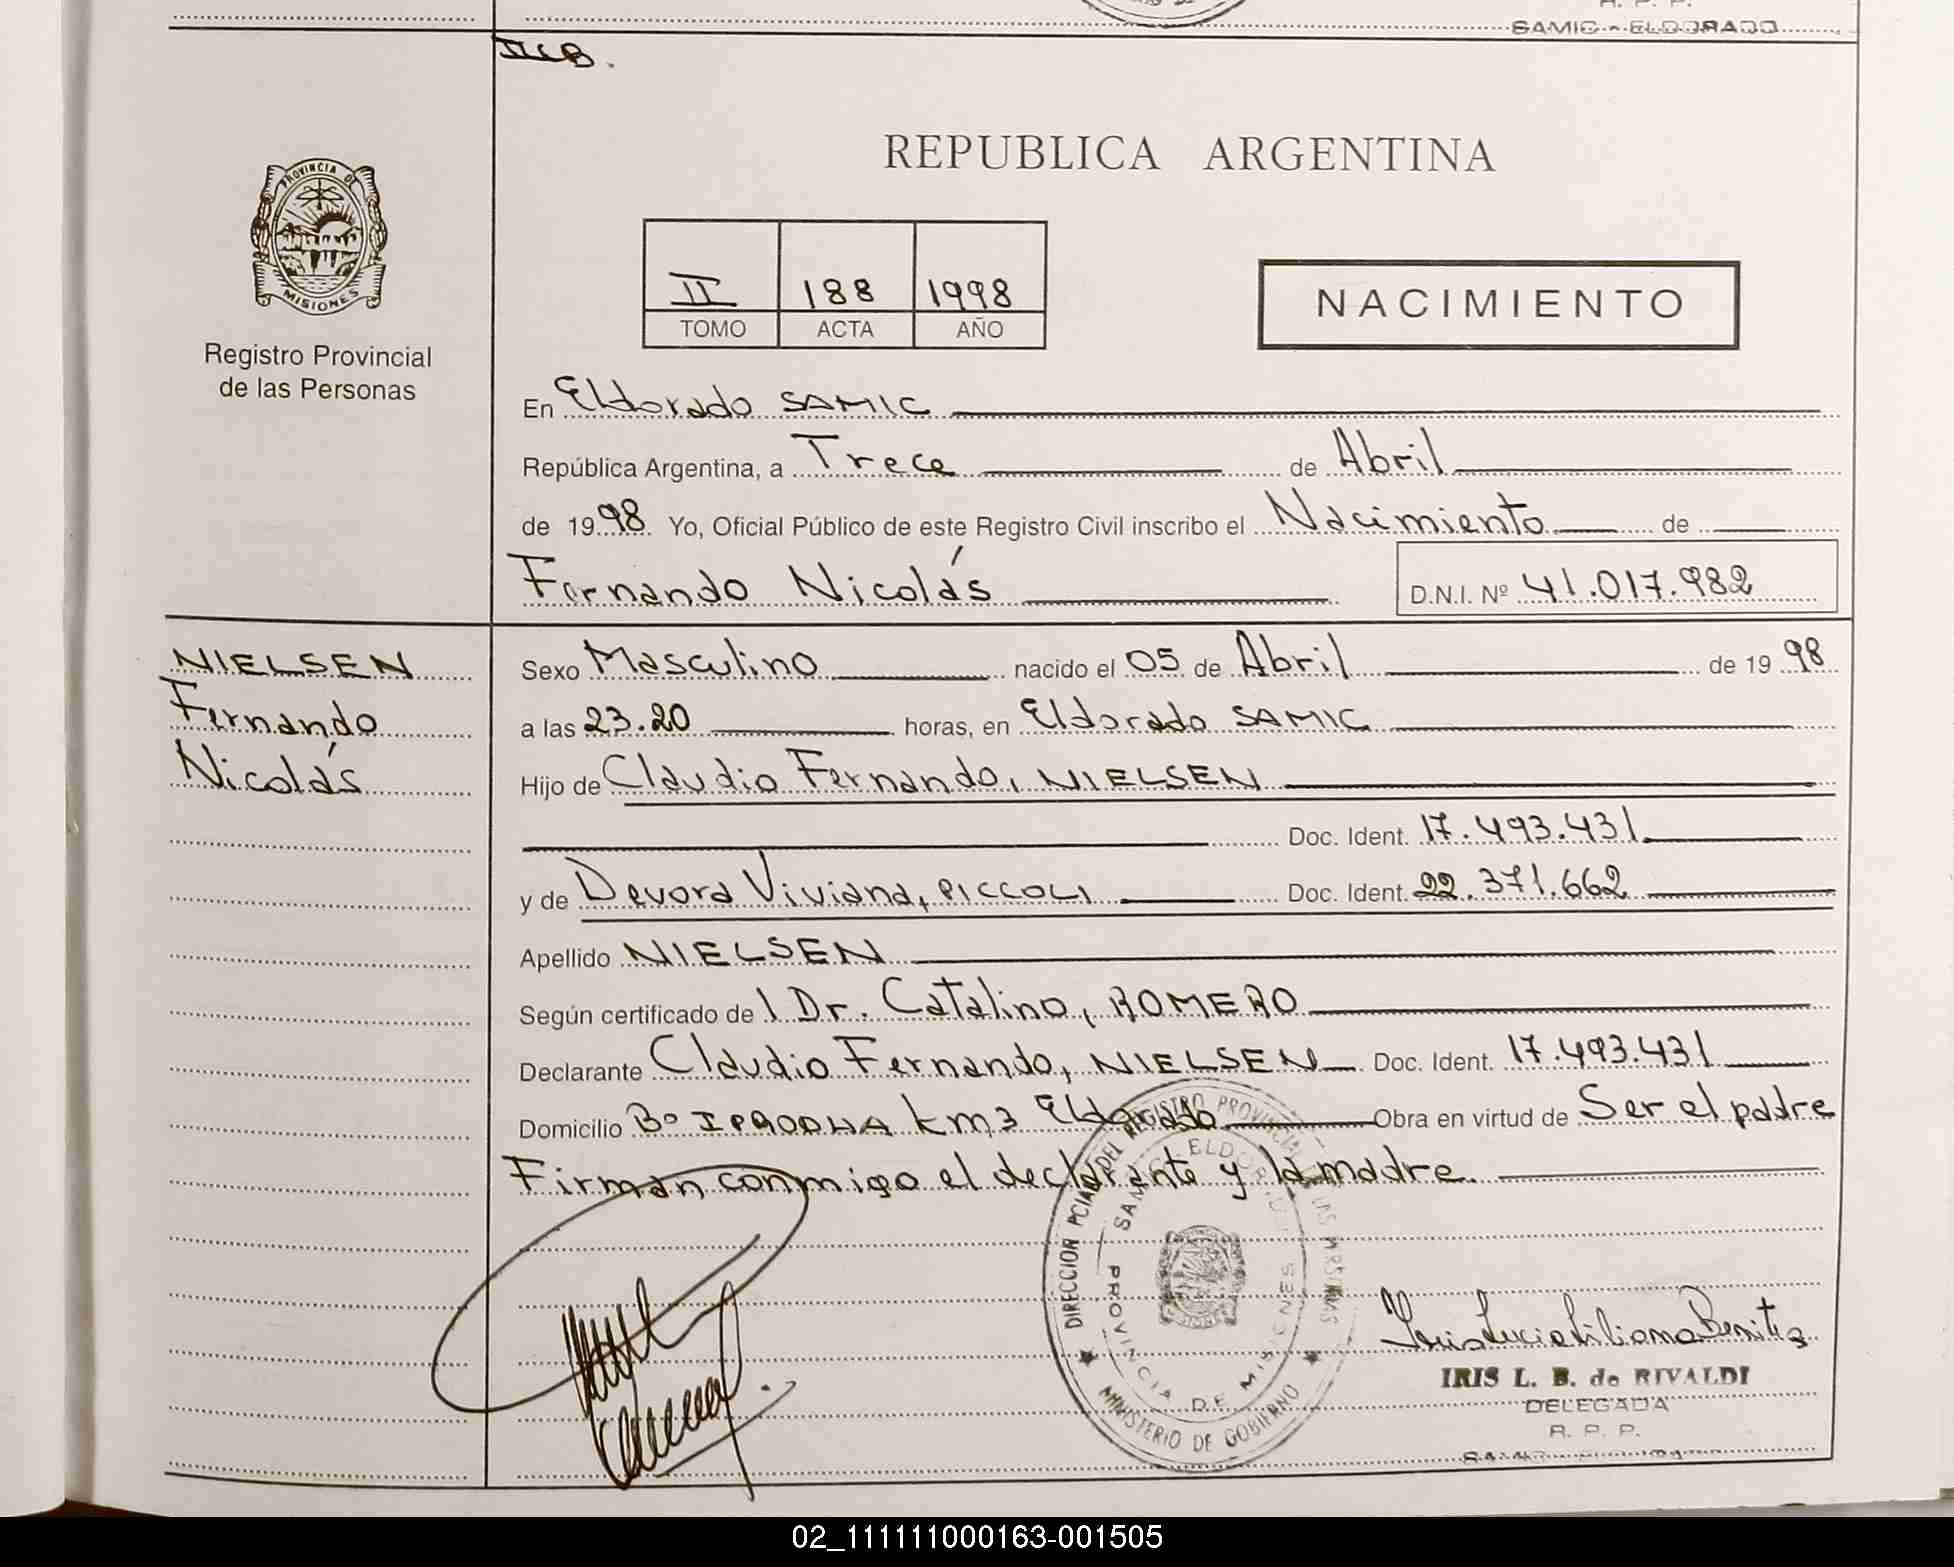 SAMIC - ELDORADO
REPUBLICA ARGENTINA
PROVINCIA DE
MISIONES
Registro Provincial
de las Personas
II 188 1998
TOMO ACTA AÑO
NACIMIENTO
En Eldorado SAMIC
República Argentina, a Trece de Abril
de 1998 Yo, Oficial Público de este Registro Civil inscribo el Nacimiento de
Fernando Nicolás D.N.I. Nº 41.017.982
NIELSEN
Fernando
Nicolás
Sexo Masculino nacido el 05 de Abril de 1998
a las 23.20 horas, en Eldorado SAMIC
Hijo de Claudio Fernando, NIELSEN
Doc. Ident. 17.493.431
y de Devora Viviana, PICCOLI Doc. Ident. 22.371.662
Apellido NIELSEN
Según certificado de l Dr. Catalino, ROMERO
Declarante Claudio Fernando, NIELSEN Doc. Ident. 17.493.431
Domicilio Bº IPRODHA km3 Eldorado Obra en virtud de Ser el padre
Firman conmigo el declarante y la madre.
DIRECCION PCIAL DEL REGISTRO PROVINCIAL DE LAS PERSONAS
MINISTERIO DE GOBIERNO
SAMIC ELDORADO
PROVINCIA DE MISIONES
Iris Lucia Liliana Benitez
IRIS L. B. de RIVALDI
DELEGADA
R. P. P.
02_111111000163-001505